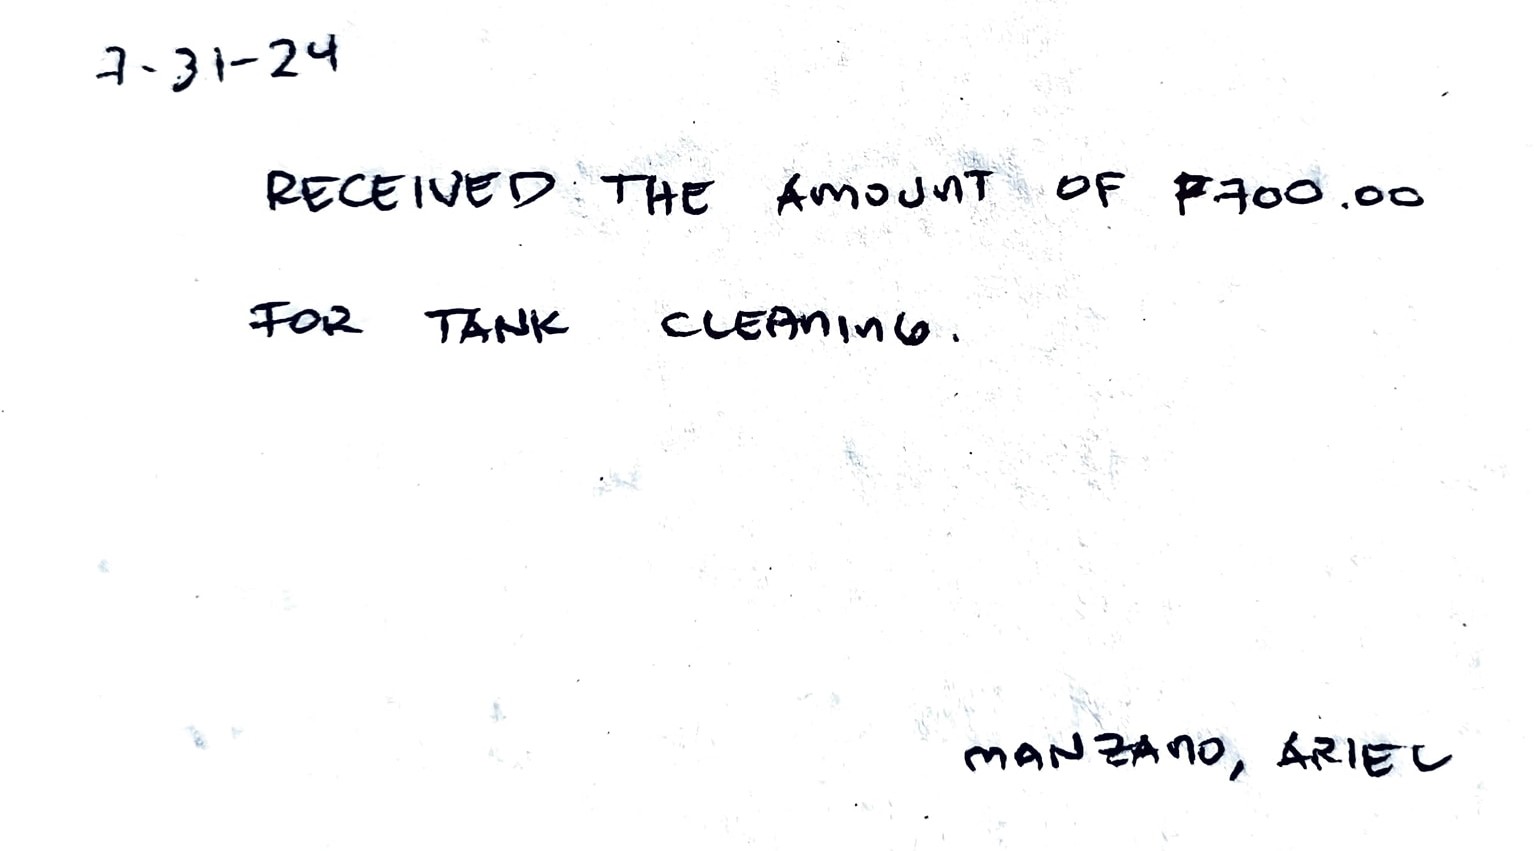 7-31-24
RECEIVED THE AMOUNT OF ₱700.00
FOR TANK CLEANING.
MANZANO, ARIEL